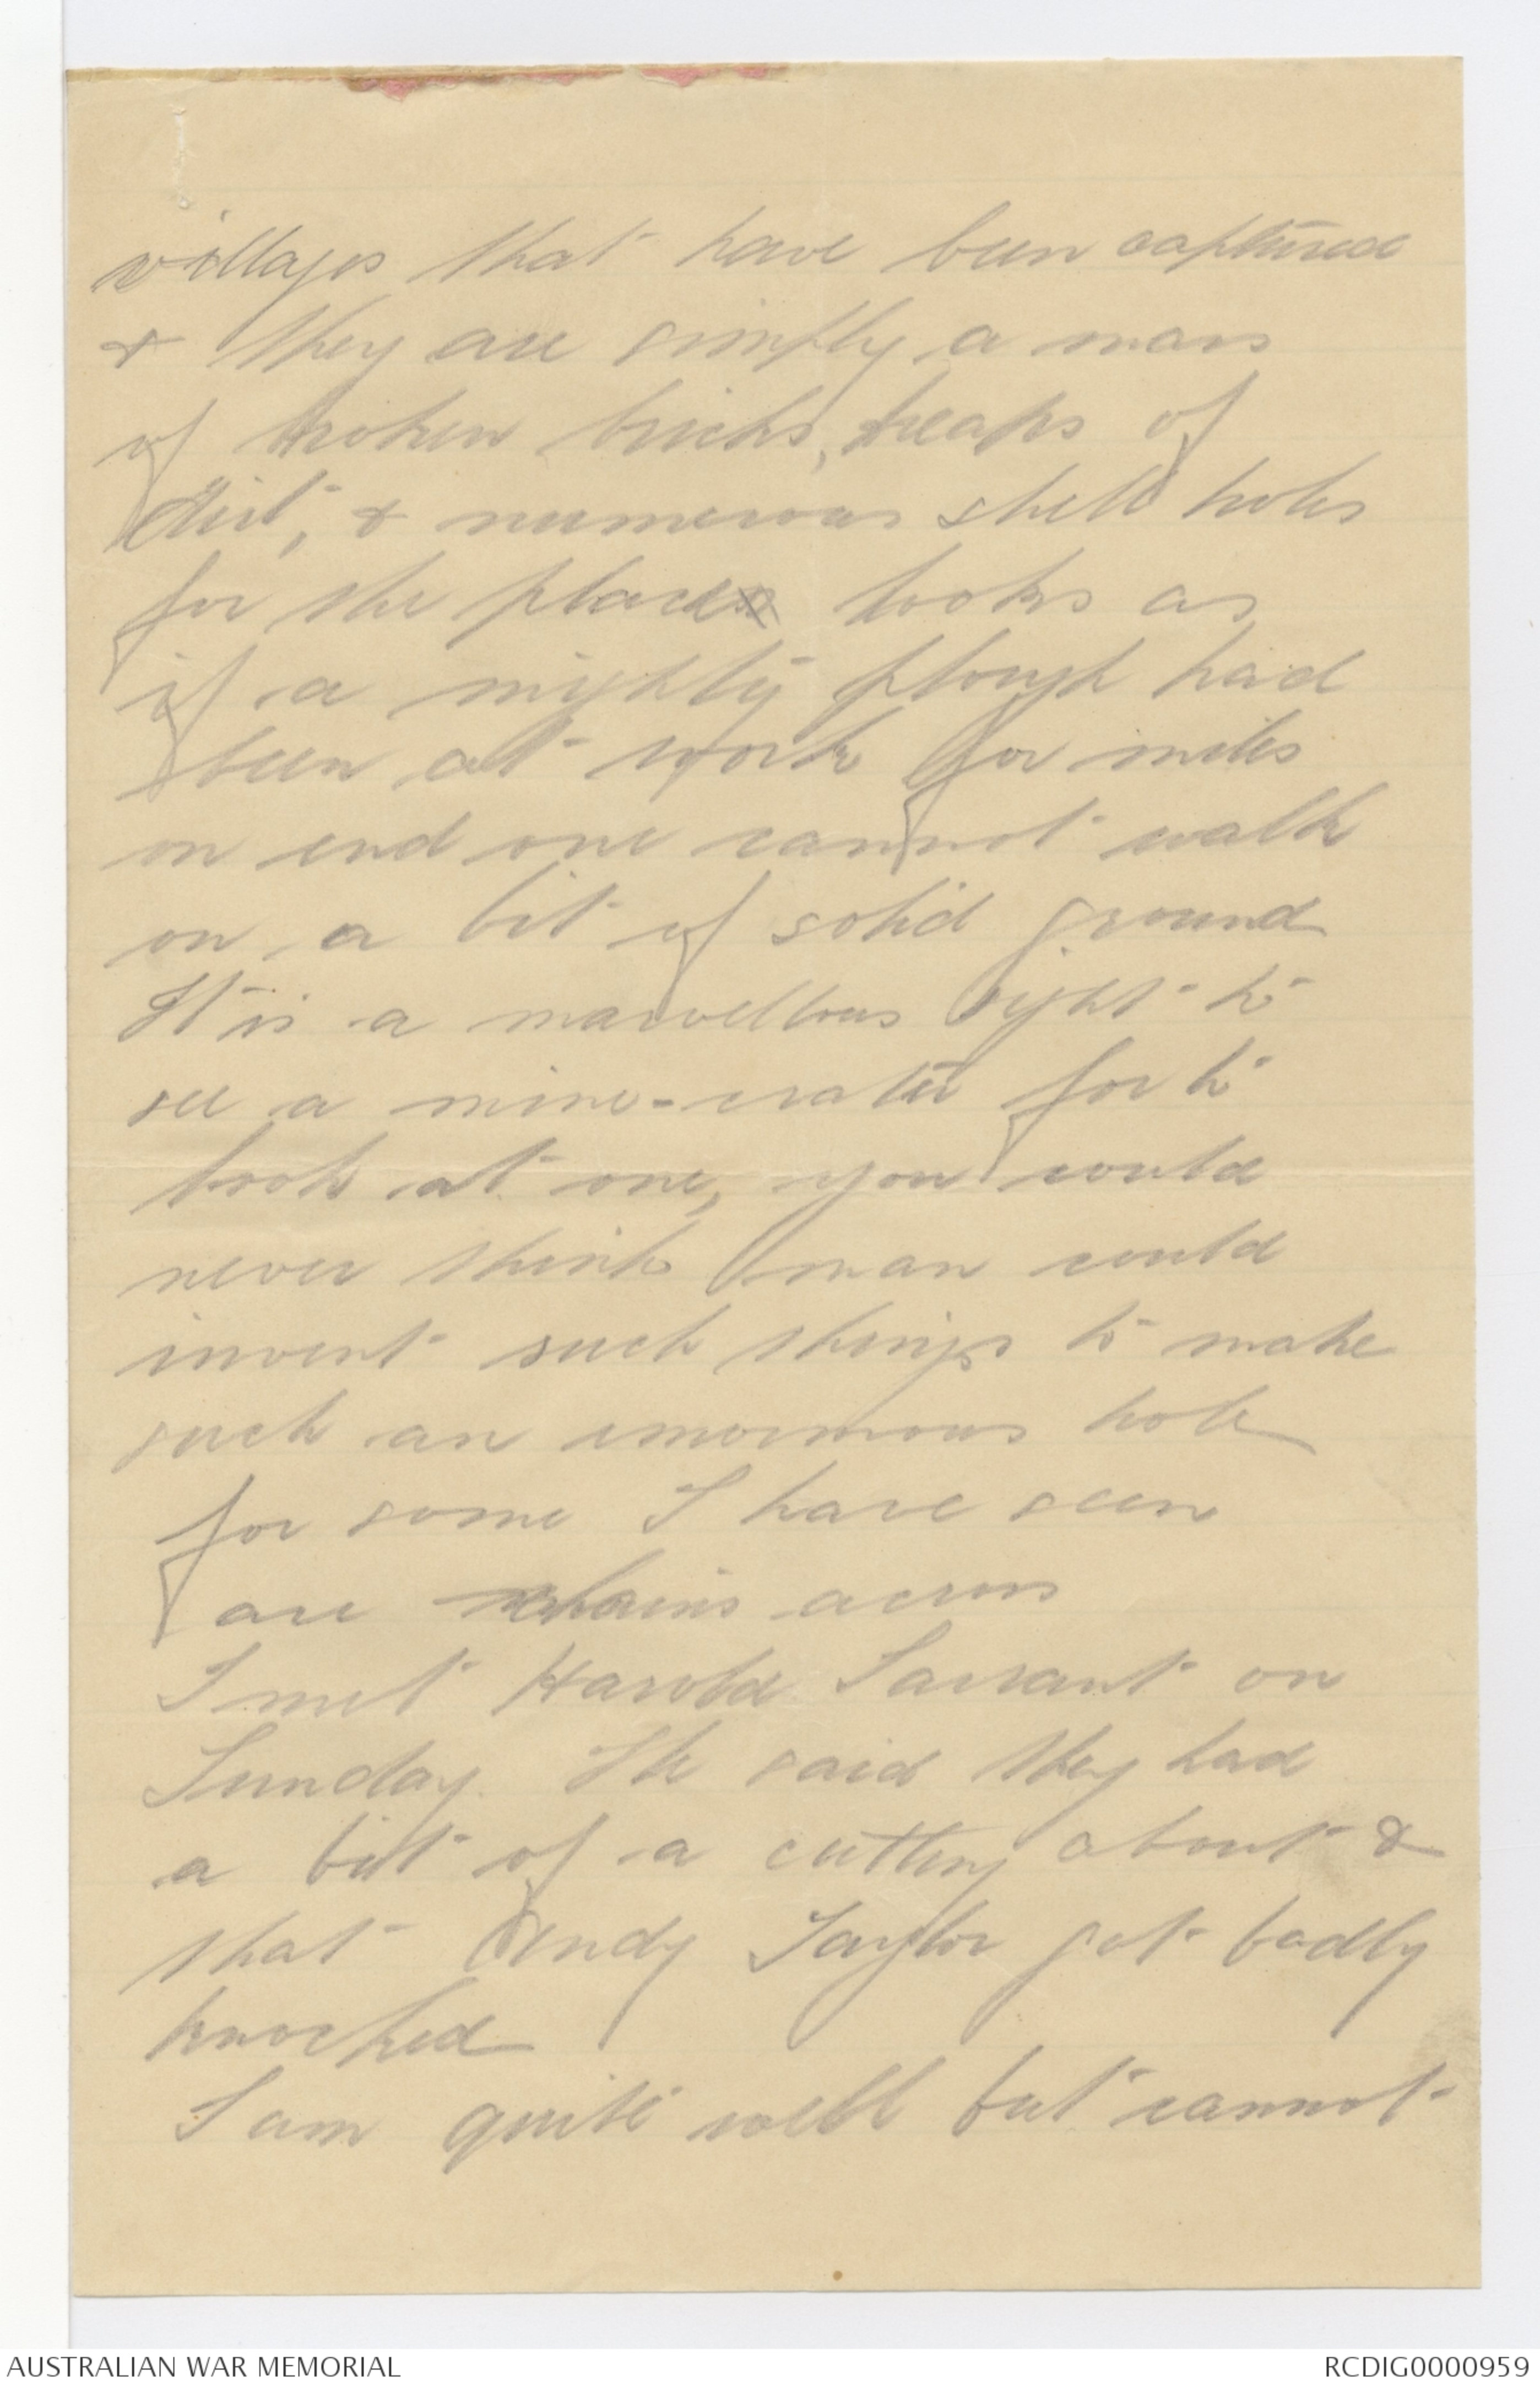 villages that have been captured
& they are simply a mass
of broken bricks, heaps of
dirt, & numerous shell holes
for the place looks as
if a mighty plough had
been at work for miles
on end one cannot walk
on a bit of solid ground
It is a marvellous sight to
see a mine-crater for to
look at one, you would
never think man could
invent such things to make
such an enormous hole
for some I have seen
are chains across
I met Harold Sarrant on
Sunday. He said they had
a bit of a cutting about &
that Andy Taylor got badly
knocked
I am quite well but cannot
AUSTRALIAN WAR MEMORIAL
RCDIG0000959